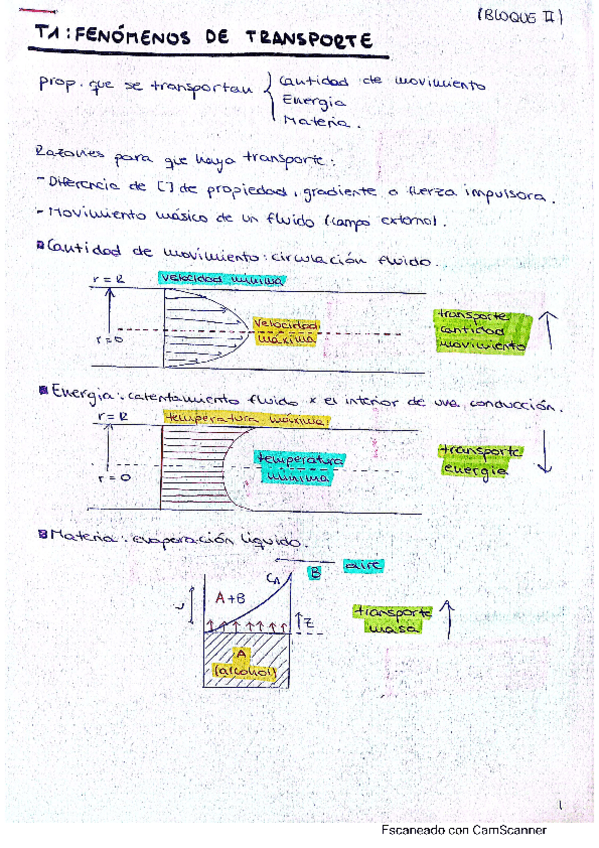 (BLOQUE II)
T1: FENÓMENOS DE TRANSPORTE
prop. que se transportan { Cantidad de movimiento
Energia
Materia.
Razones para que haya transporte:
- Diferencia de [] de propiedad, gradiente o fuerza impulsora.
- Movimiento másico de un fluido (campo externo).
Cantidad de movimiento: circulación fluido.
r=R velocidad mínima
velocidad máxima
r=0
transporte cantidad movimiento
Energia: calentamiento fluido x el interior de una conducción.
r=R temperatura máxima
temperatura mínima
r=0
transporte energia
Materia: evaporación líquido.
B aire
CA
A+B
z
transporte masa
A
(alcohol)
1
Escaneado con CamScanner